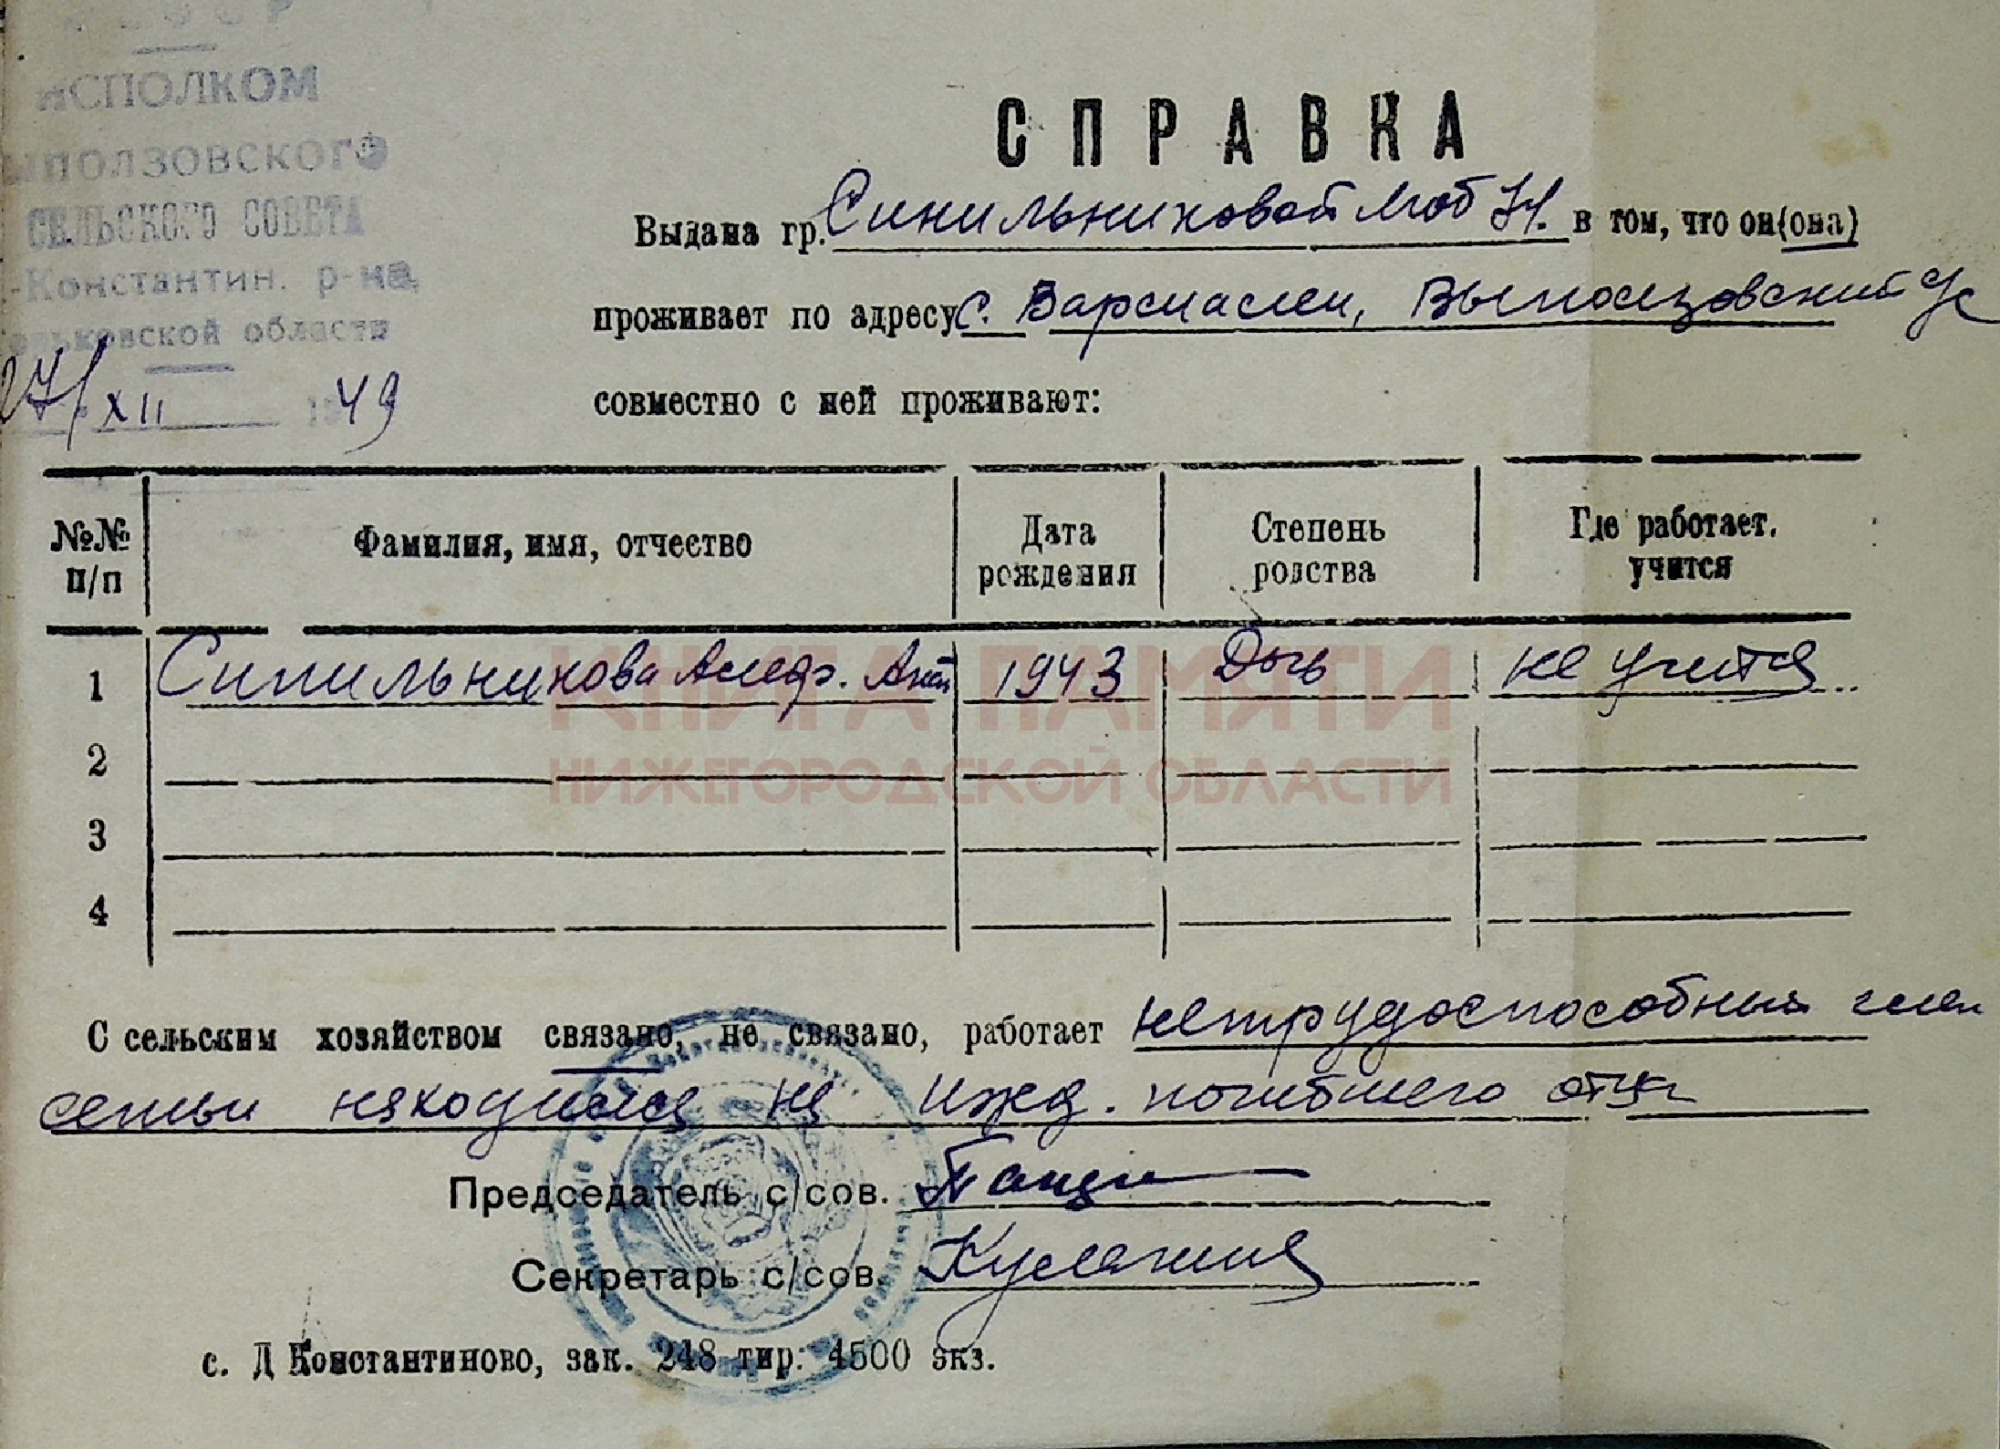 РСФСР
ИСПОЛКОМ
ыползовского
СЕЛЬСКОГО СОВЕТА
-Константин. р-на,
орьковской области
27/XII 1949
СПРАВКА
Выдана гр. Синильниковой Люб И. в том, что он(она)
проживает по адресу с. Вармалеи, Выползовский с/с
совместно с ней проживают:
№№ п/п Фамилия, имя, отчество Дата рождения Степень родства Где работает, учится
1 Синильникова Алефт. Ант 1943 Дочь не учится
2
3
4
КНИГА ПАМЯТИ
НИЖЕГОРОДСКОЙ ОБЛАСТИ
С сельским хозяйством связано, не связано, работает нетрудоспособный член
семьи находился на ижд. погибшего отца
Председатель с/сов.
Секретарь с/сов.
с. Д Константиново, зак. 248 тир. 4500 экз.